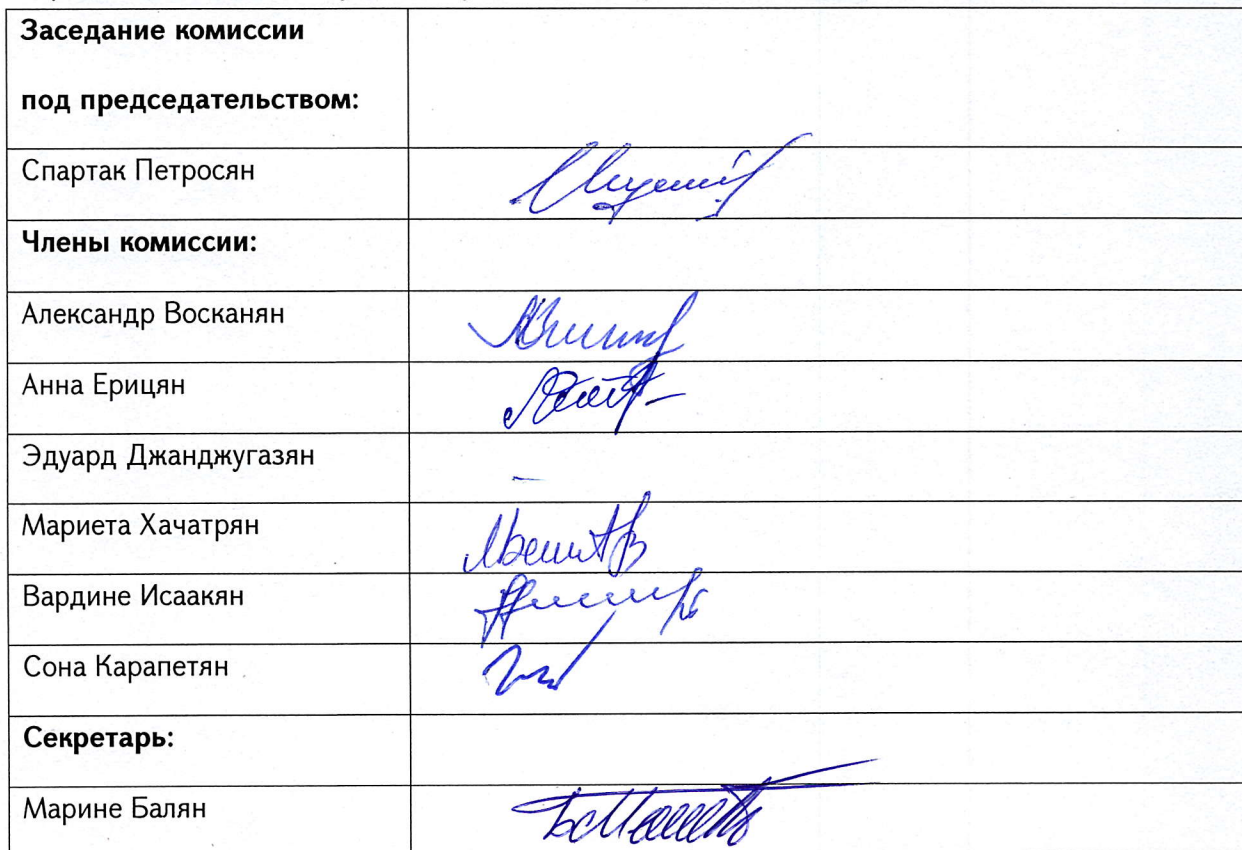 Заседание комиссии
под председательством:
Спартак Петросян
Члены комиссии:
Александр Восканян
Анна Ерицян
Эдуард Джанджугазян
–
Мариета Хачатрян
Вардине Исаакян
Сона Карапетян
Секретарь:
Марине Балян